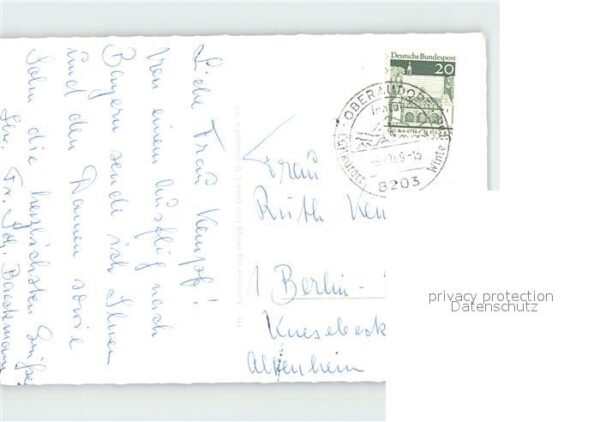 Liebe Frau Kempf!
Von einem Ausflug nach
Bayern sende ich Ihnen
und den Damen sowie
die herzlichsten Grüße
Deutsche Bundespost
20
OBERAUDORF
8203
Frau
Ruth
1 Berlin-
Knesebeck
Altenheim
privacy protection
Datenschutz